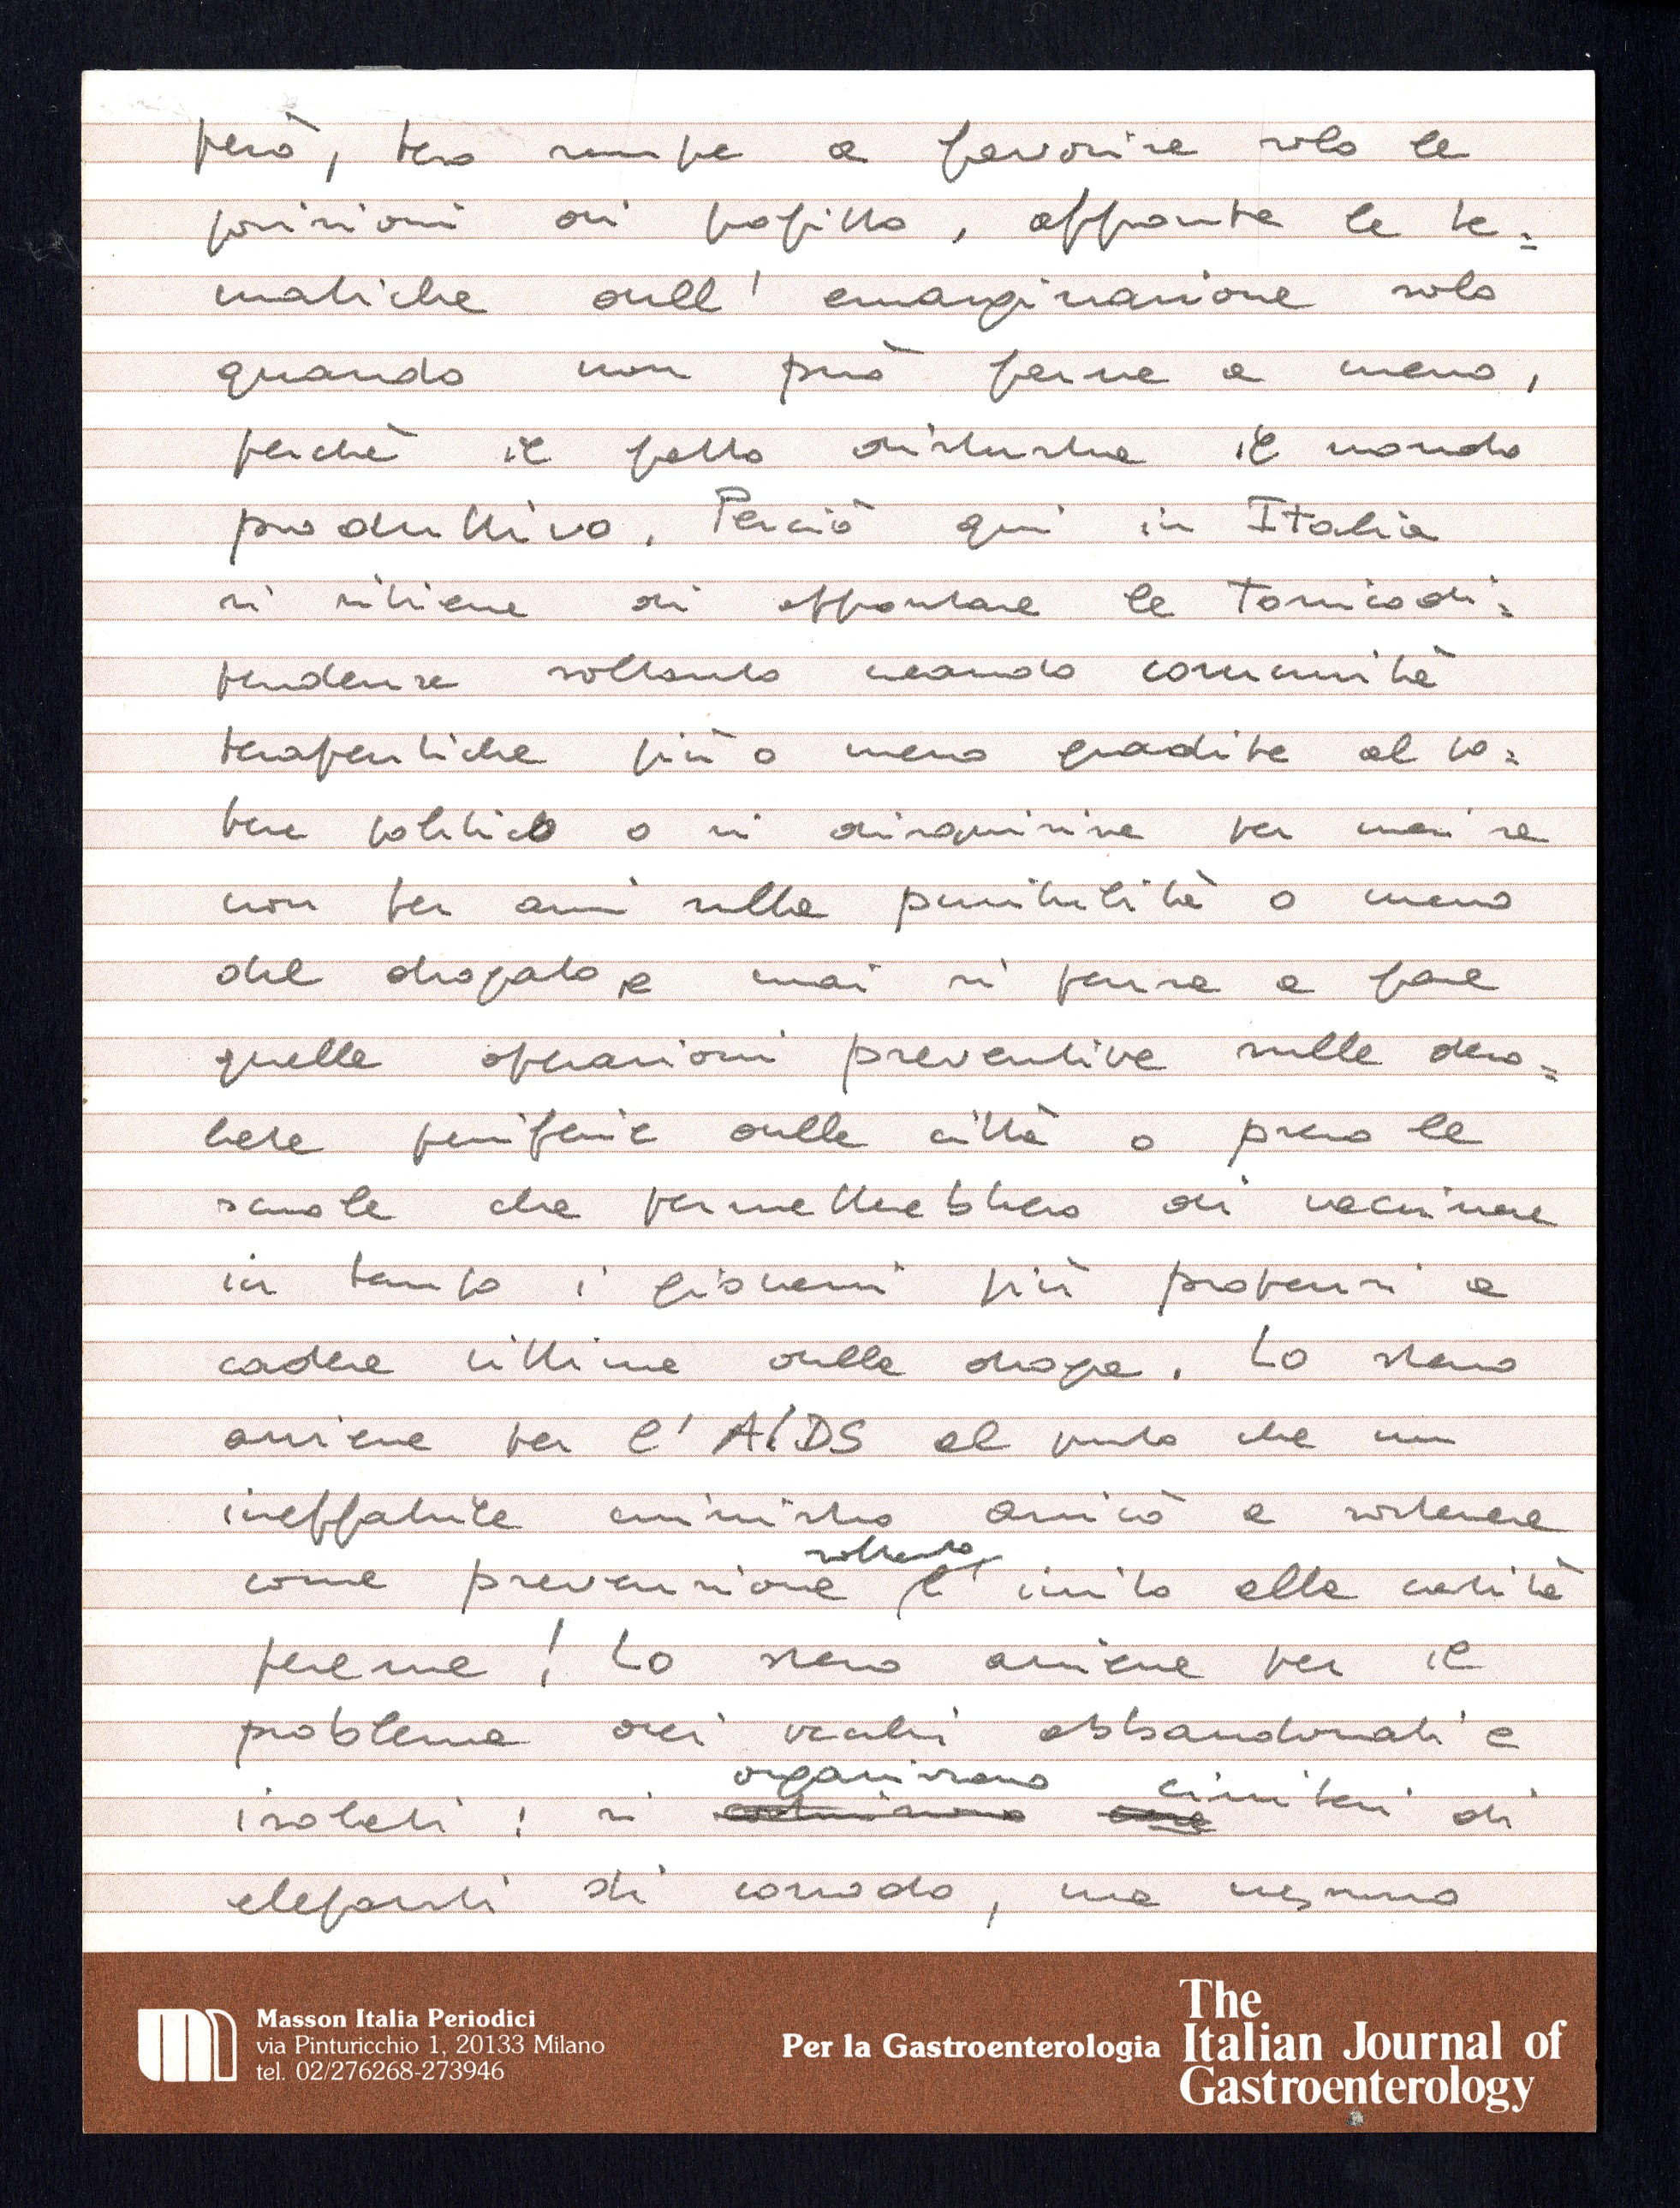 però, teso sempre a favorire solo le
posizioni di profitto, affronta le te=
matiche dell'emarginazione solo
quando non può farne a meno,
perchè il fatto disturba il mondo
produttivo. Perciò qui in Italia
si ritiene di affrontare le Tossicodi=
pendenze soltanto creando comunità
terapeutiche più o meno gradite al po=
tere politico o si disquisisce per mesi se
non per anni sulla punibilità o meno
del drogato, e mai si pensa a fare
quelle operazioni preventive nelle dere=
litte periferie delle città o presso le
scuole che permetterebbero di vaccinare
in tempo i giovani più propensi a
cadere vittime della droga. Lo stesso
avviene per l'AIDS al punto che un
ineffabile ministro arrivò a sostenere
come prevenzione soltanto l'invito alla castità
perenne! Lo stesso avviene per il
problema dei vecchi abbandonati e
isolati: si organizzano cimiteri di
elefanti di comodo, ma nessuno
Masson Italia Periodici
via Pinturicchio 1, 20133 Milano
tel. 02/276268-273946
Per la Gastroenterologia
The
Italian Journal of
Gastroenterology